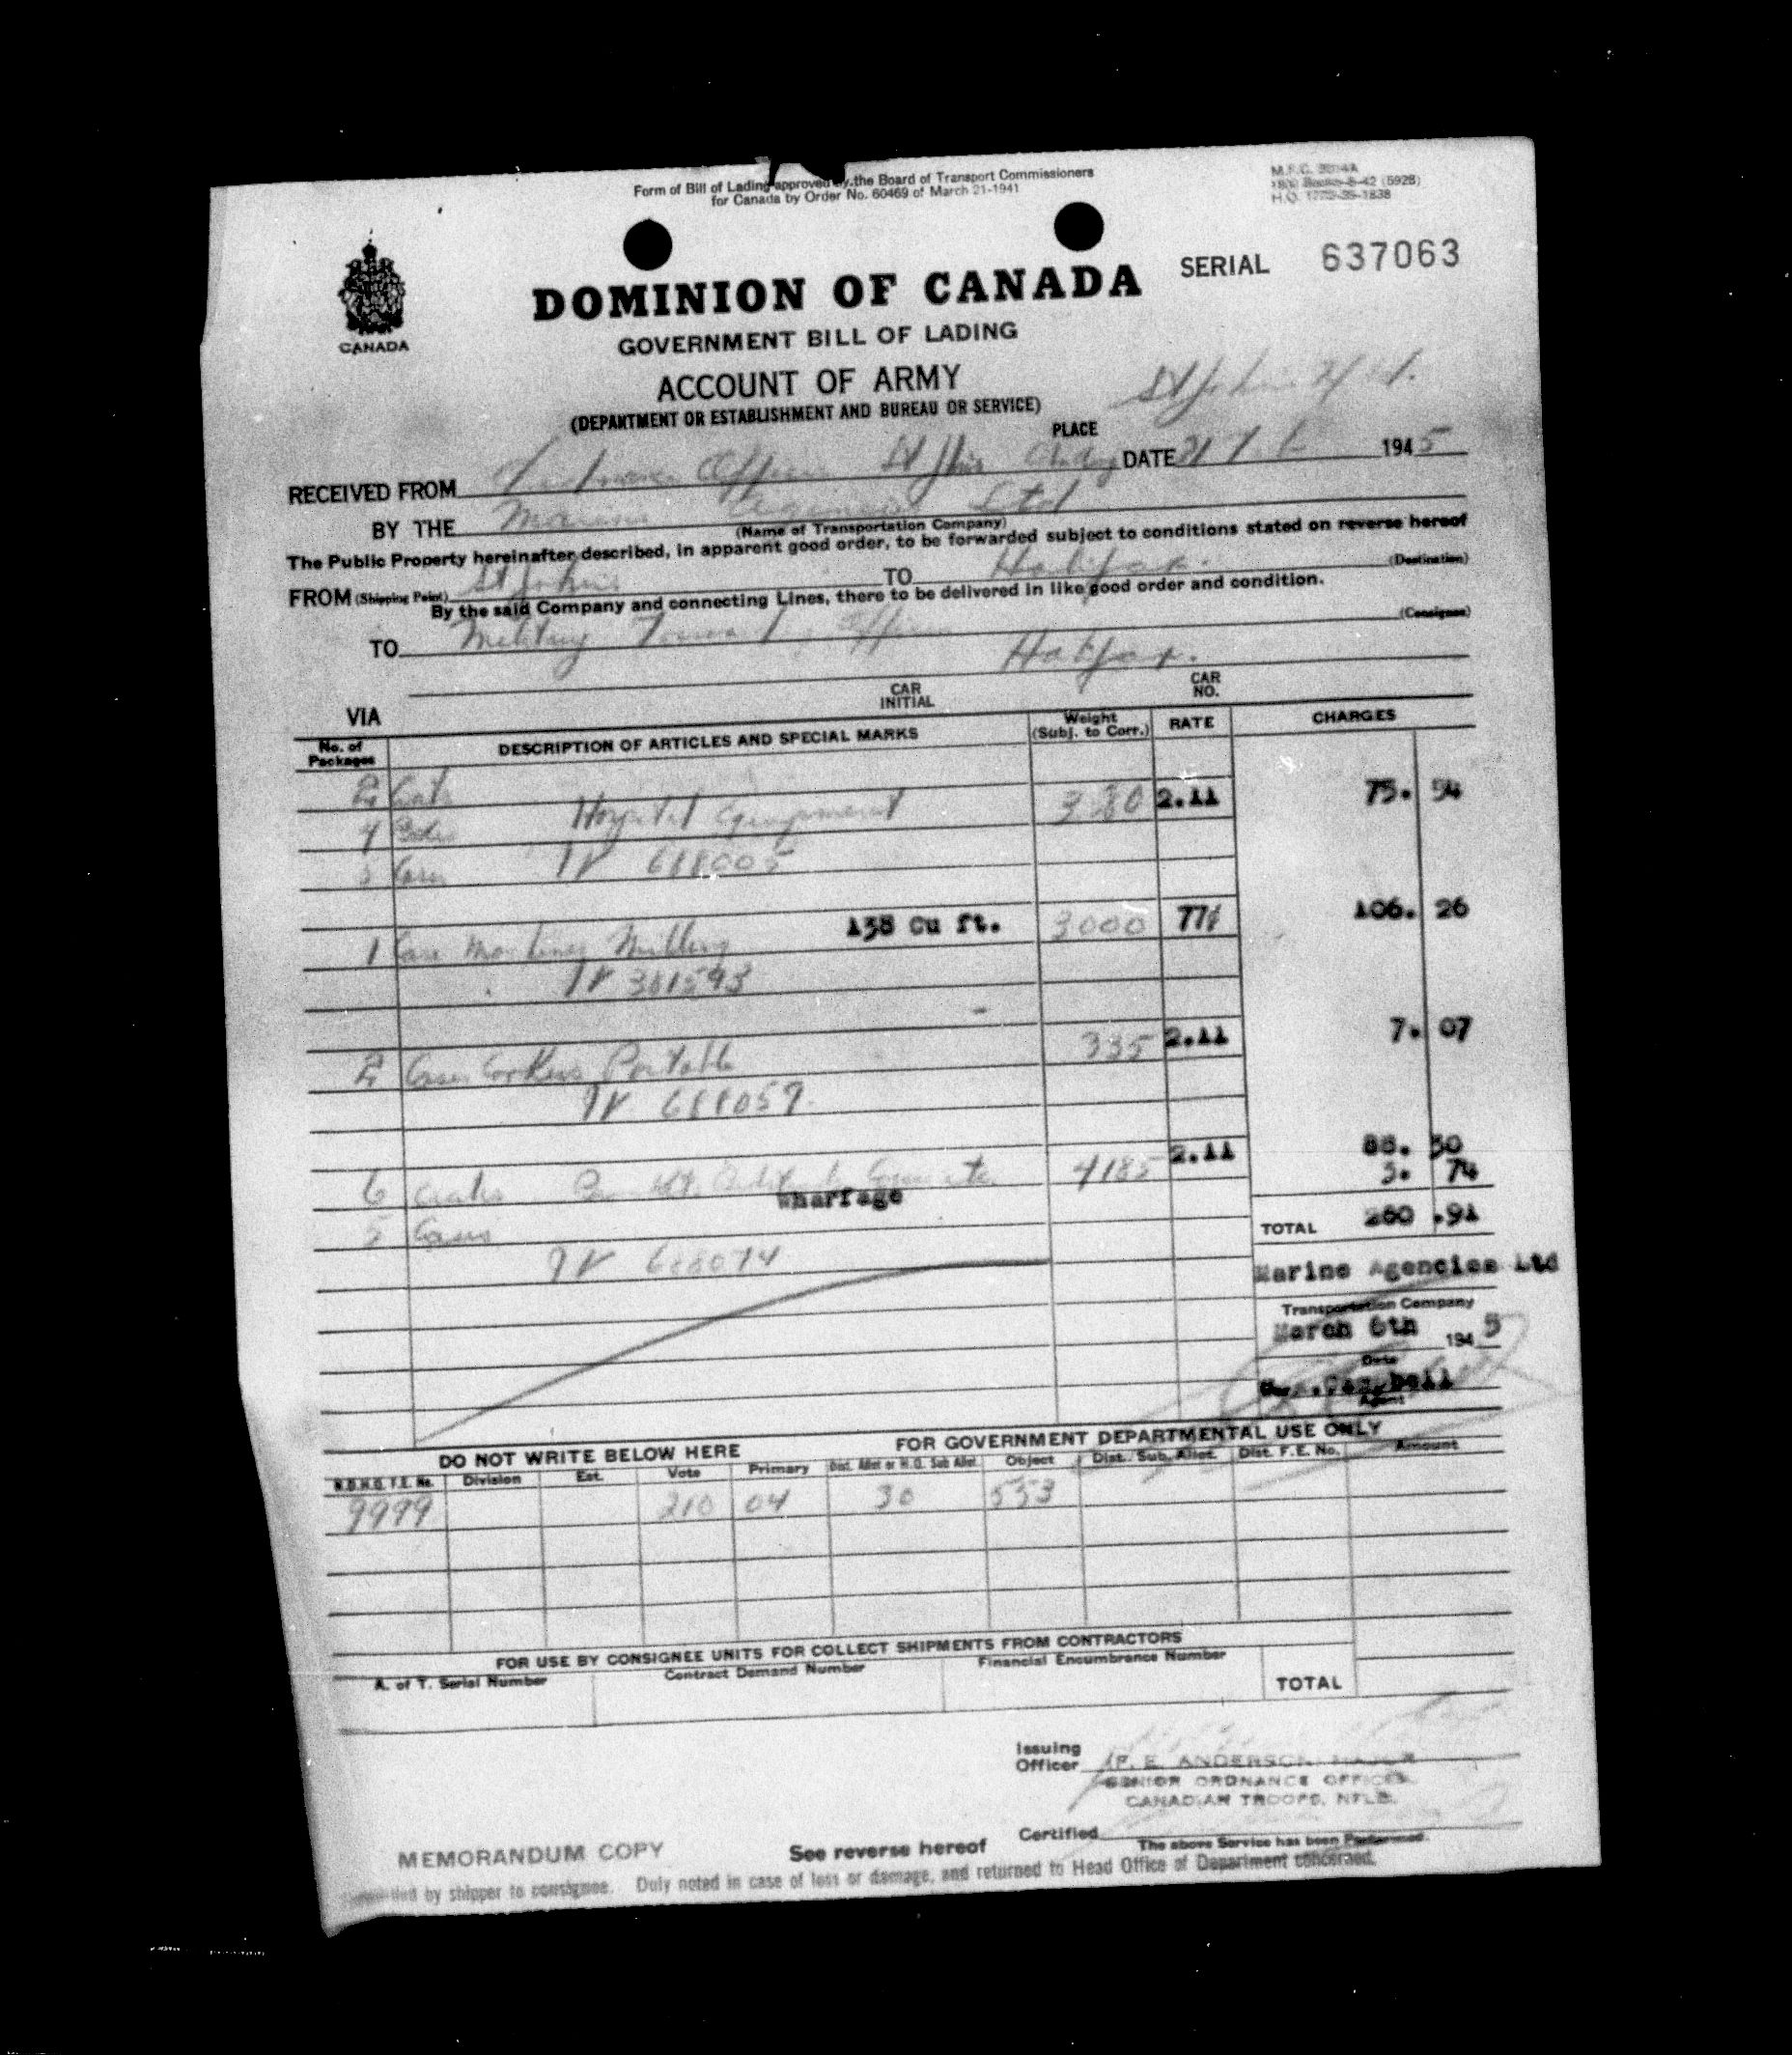 Form of Bill of Lading approved by the Board of Transport Commissioners
for Canada by Order No. 60469 of March 21-1941
(5928)
CANADA
DOMINION OF CANADA
SERIAL 637063
GOVERNMENT BILL OF LADING
ACCOUNT OF ARMY
(DEPARTMENT OR ESTABLISHMENT AND BUREAU OR SERVICE)
PLACE St Johns
RECEIVED FROM Ordnance Officer St Johns DATE 1945
BY THE Marine Agencies Ltd
(Name of Transportation Company)
The Public Property hereinafter described, in apparent good order, to be forwarded subject to conditions stated on reverse hereof
FROM (Shipping Point) St John's TO Halifax. (Destination)
By the said Company and connecting Lines, there to be delivered in like good order and condition.
TO Military Forward. Officer (Consignee)
Halifax.
VIA CAR INITIAL CAR NO.
No. of Packages DESCRIPTION OF ARTICLES AND SPECIAL MARKS Weight (Subj. to Corr.) RATE CHARGES
2
4 Hospital Equipment 2.11 75. 54
IV 688005
1 Case 138 Cu ft. 3000 77¢ 106. 26
IV 381593
2 Cases Cookers Portable 335 2.11 7. 07
IV 688059.
6 Crates 4185 2.11 88. 30
Wharfage 3. 74
5 Cases
TOTAL 280 .91
IV 688074
Marine Agencies Ltd
Transportation Company
March 6th 1945
Date
Agent
DO NOT WRITE BELOW HERE FOR GOVERNMENT DEPARTMENTAL USE ONLY
N.D.H.Q. F.E. No. Division Est. Vote Primary Dist. Allot or H.Q. Sub Allot. Object Dist. Sub. Allot. Dist. F.E. No. Amount
9999 210 04 30 553
FOR USE BY CONSIGNEE UNITS FOR COLLECT SHIPMENTS FROM CONTRACTORS
A. of T. Serial Number Contract Demand Number Financial Encumbrance Number
TOTAL
Issuing
Officer (F. E. ANDERSON, MAJOR
SENIOR ORDNANCE OFFICER
CANADIAN TROOPS, NFLD.
Certified
The above Service has been Performed.
MEMORANDUM COPY See reverse hereof
by shipper to consignee. Duly noted in case of loss or damage, and returned to Head Office of Department concerned.